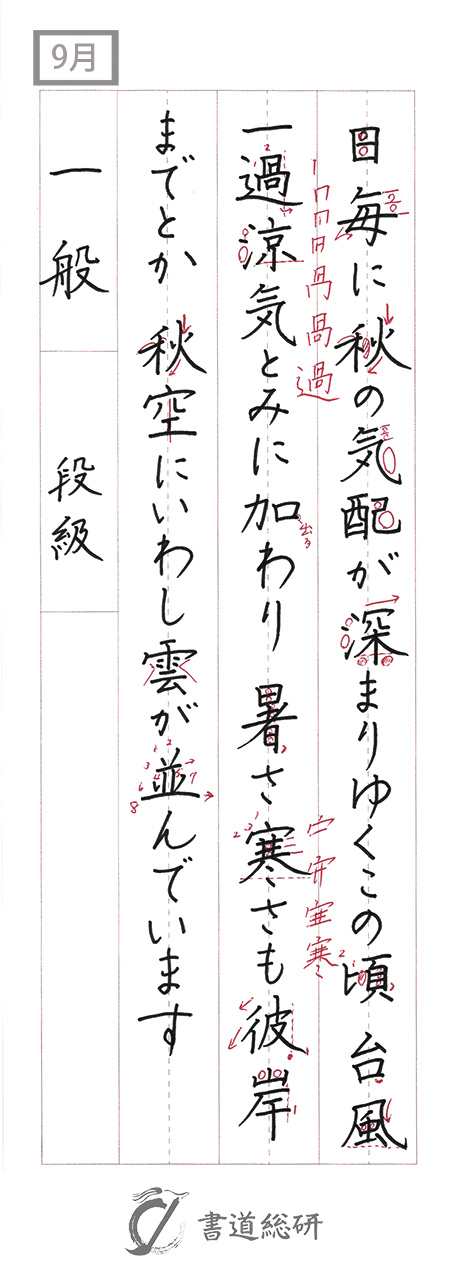 9月
日毎に秋の気配が深まりゆくこの頃 台風
一過涼気とみに加わり 暑さ寒さも彼岸
までとか 秋空にいわし雲が並んでいます
一般
段級
過
出る
寒
書道総研